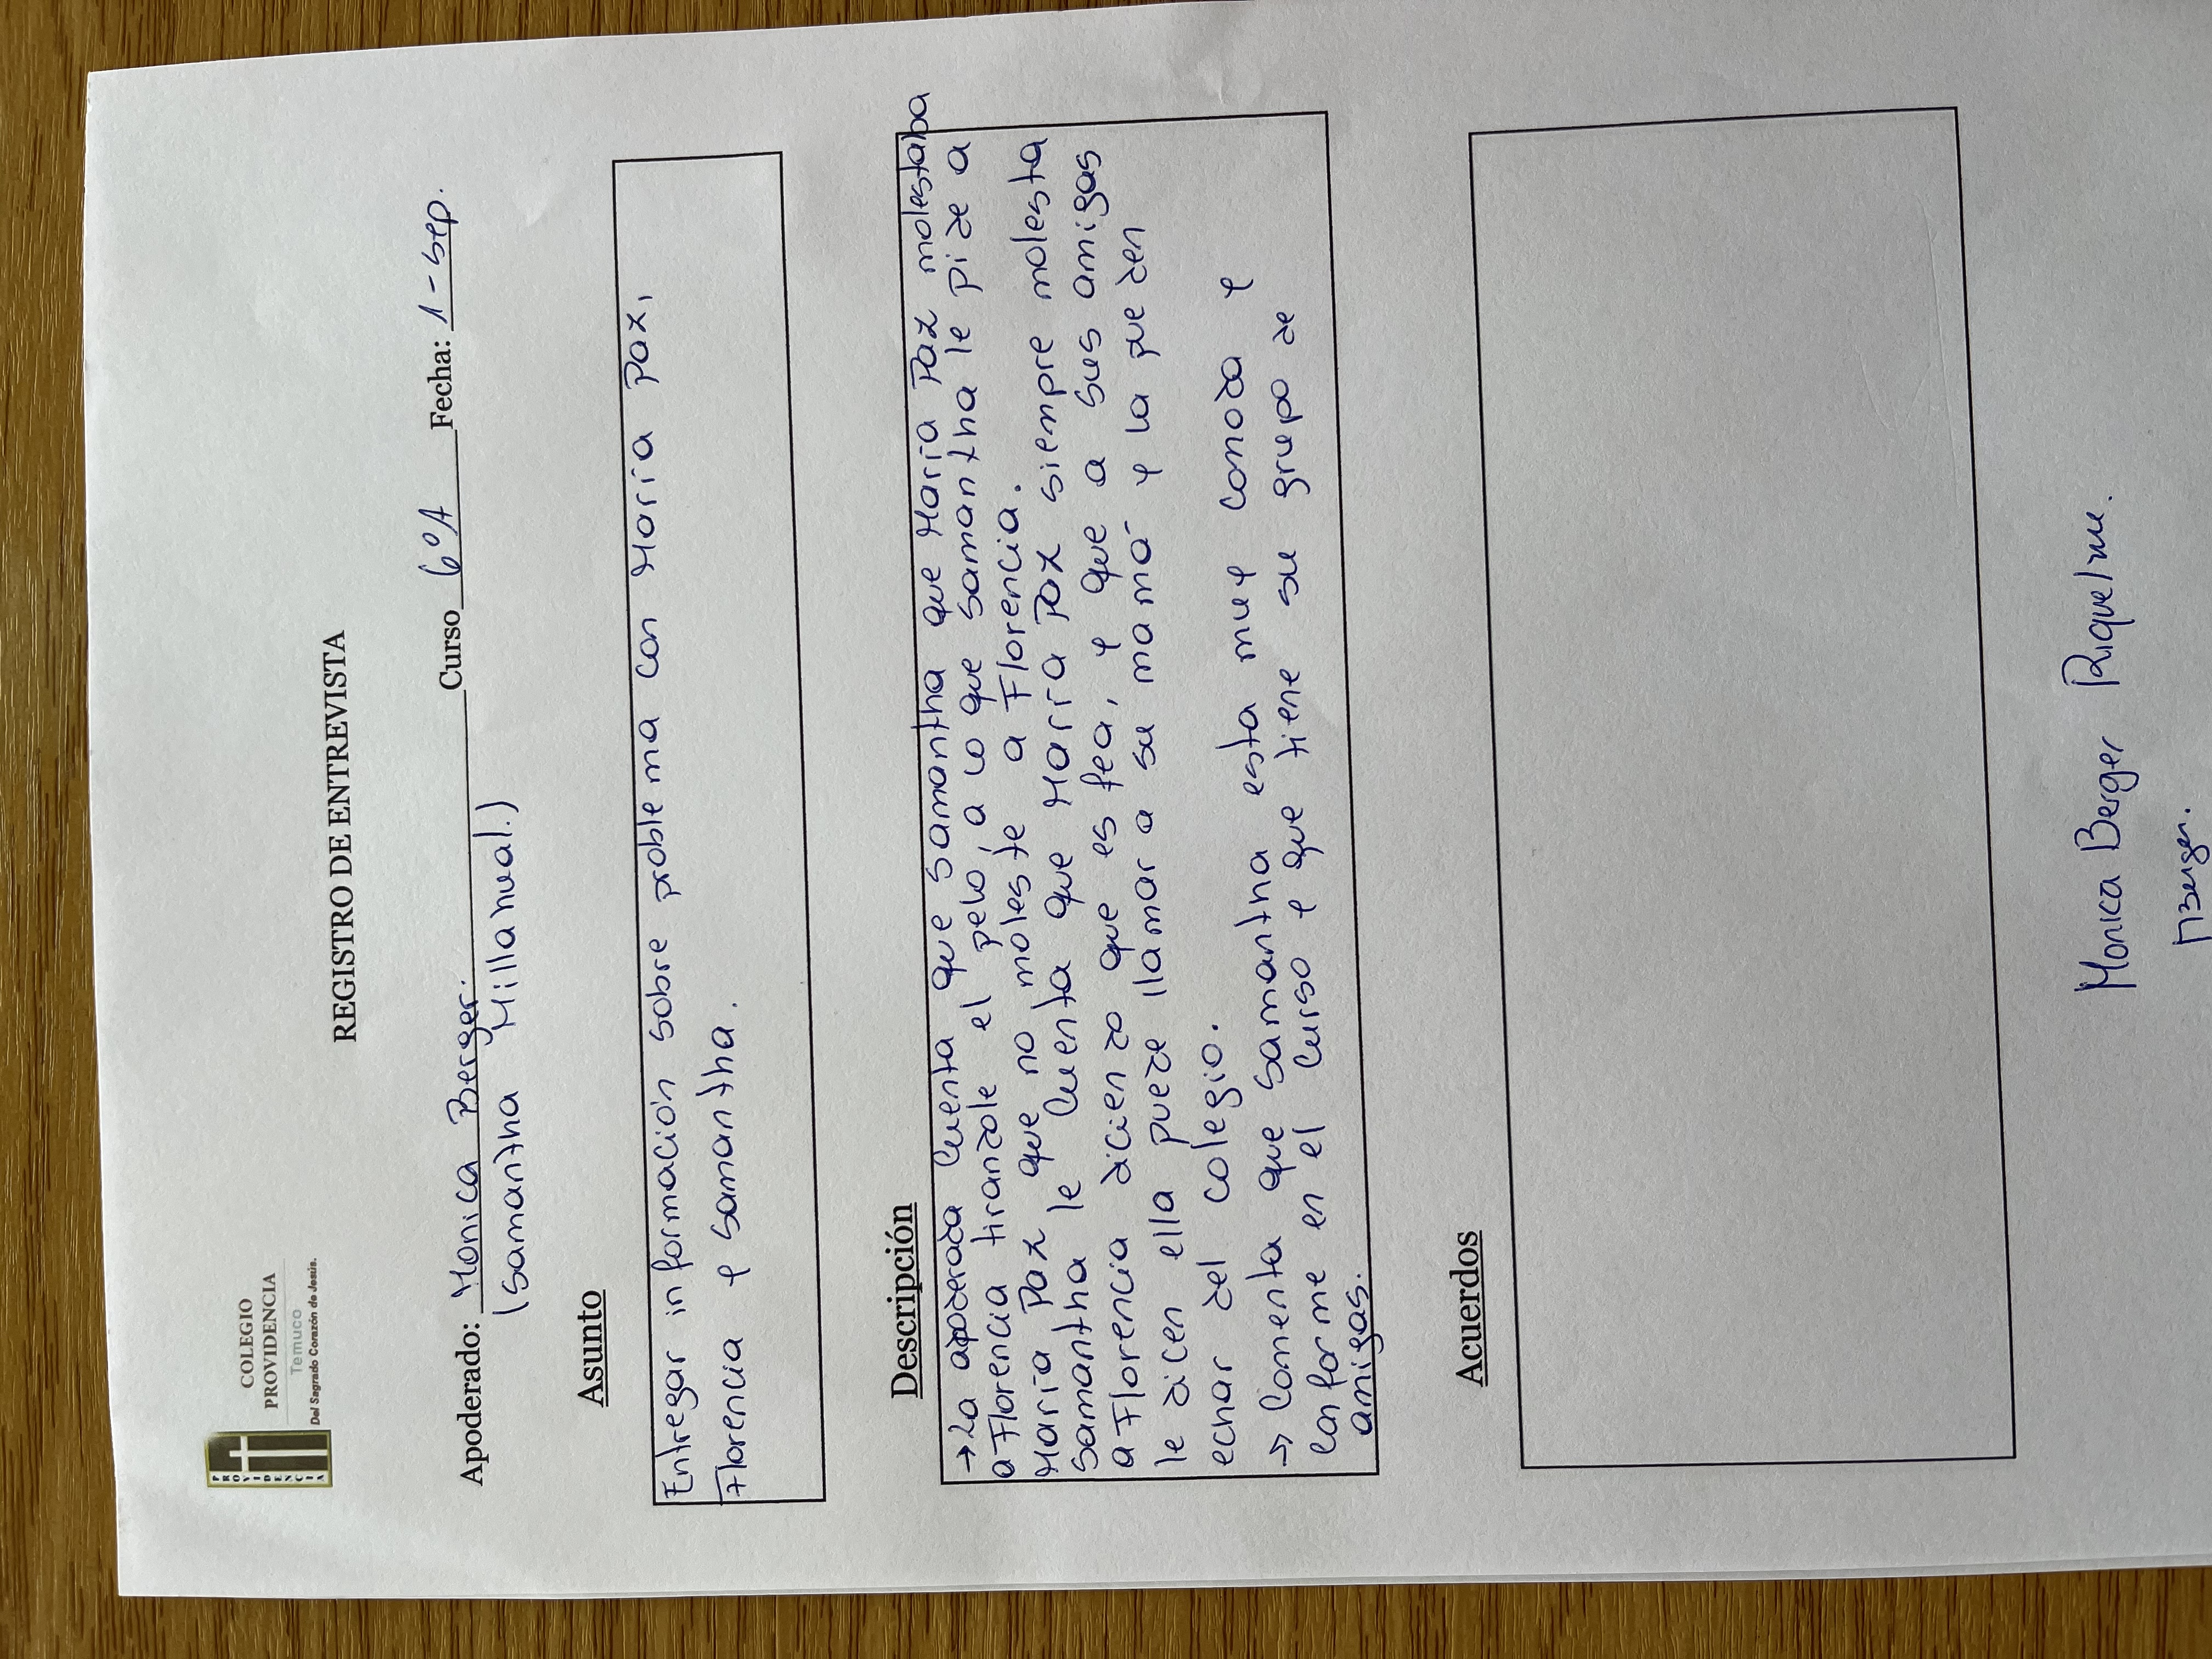 COLEGIO
PROVIDENCIA
Temuco
Del Sagrado Corazón de Jesús.
PROVIDENCIA
REGISTRO DE ENTREVISTA
Apoderado: Monica Berger. Curso 6°A Fecha: 1-sep.
(samantha Millanual.)
Asunto
Entregar información sobre problema con María Paz,
Florencia y samantha.
Descripción
→ La apoderada cuenta que samantha que María Paz molestaba
a Florencia tirandole el pelo, a lo que samantha le pide a
María Paz que no moleste a Florencia.
samantha le cuenta que María Paz siempre molesta
a Florencia diciendo que es fea, y que a sus amigas
le dicen ella puede llamar a su mamá y la pueden
echar del colegio.
→ Comenta que samantha esta muy comoda y
conforme en el curso y que tiene su grupo de
amigas.
Acuerdos
Monica Berger Riquelme.